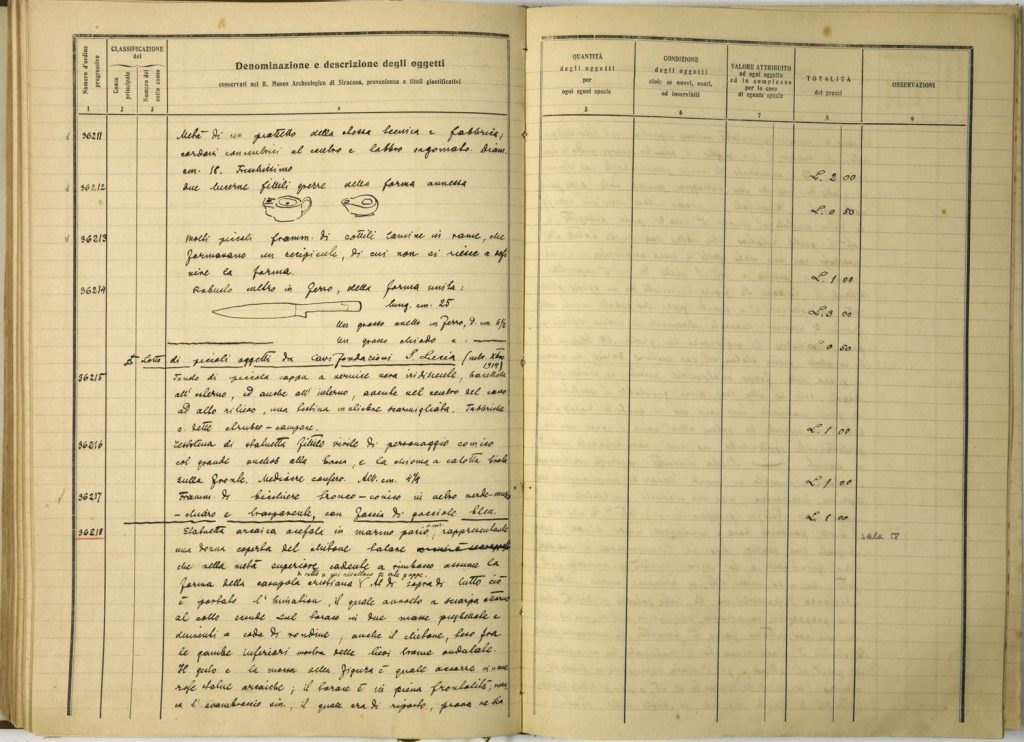 Numero d'ordine progressivo
CLASSIFICAZIONE del
Conto principale
Numero del sotto conto
Denominazione e descrizione degli oggetti
conservati nel R. Museo Archeologico di Siracusa, provenienza e titoli giustificativi
1 2 3 4
36211 Metà di un piattello della stessa tecnica e fabbrica;
cordoni concentrici al centro e labbro sagomato. Diam.
cm. 18. Freschissimo
36212 due lucerne fittili grezze della forma annessa
36213 Molti piccoli framm. di sottili lamine in rame, che
formavano un recipiente, di cui non si riesce a defi
nire la forma.
36214 Robusto cultro in ferro, della forma unita:
lung. cm. 25
Un grosso anello in ferro, D. cm. 6½
Un grosso chiodo
Lotto di piccoli oggetti da cavi fondazioni S. Lucia
1914)
36215 Fondo di piccola coppa a vernice nera iridiscente, baccellata
all'esterno, ed anche all'interno, avente nel centro del cavo
ad alto rilievo, una testina muliebre scarmigliata. Fabbriche
c. dette etrusco-campane.
36216 Testolina di statuetta fittile virile di personaggio comico
col grande alla bocca, e la chioma a calotta
sulla fronte. Mediocre conserv. Alt. cm. 4½
36217 Framm. di bicchiere tronco-conico in vetro verde-
-chiaro e trasparente, con fascio di gocciole bleu.
36218 Statuetta arcaica acefala in marmo pario, rappresentante
una donna coperta del chitone talare
che nella metà superiore cadente a rimborso assume la
di sotto a cui risaltano le
forma della casupola cristiana. Al di sopra di tutto ciò
è portato l'himation, il quale avvolto a sciarpa attorno
al collo scende sul torace in due masse pieghettate e
a coda di rondine, anche il chitone, teso fra
le gambe inferiori mostra delle lievi trame ondulate.
Il gesto e la mossa della figura è quale occorre in
statue arcaiche; il torace è in piena frontalità, man
ca l'avambraccio sin., il quale era di riporto,
QUANTITÀ
degli oggetti
per
ogni egual specie
CONDIZIONE
degli oggetti
cioè: se nuovi, usati,
od inservibili
VALORE ATTRIBUITO
ad ogni oggetto
od in complesso
per le cose
di eguale specie
TOTALITÀ
dei prezzi
OSSERVAZIONI
5 6 7 8 9
L. 2 00
L. 0 50
L. 1 00
L. 3 00
L. 0 50
L. 1 00
L. 1 00
L. 1 00
sala IV